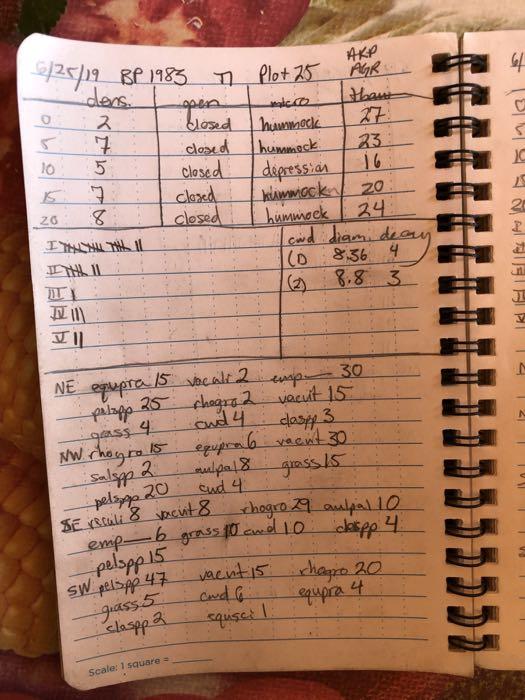 6/25/19 BP 1983 T1 Plot 25 AKP AGR
dens. open micro thaw
0 2 closed hummock 27
5 7 closed hummock 23
10 5 closed depression 16
15 7 closed hummock 20
20 8 closed hummock 24
I 卌 卌 卌 II cwd diam. decay
II 卌 II (1) 8.36 4
III I (2) 8.8 3
IV III
V II
NE equpra 15 vaculi 2 emp— 30
pelspp 25 rhogro 2 vacvit 15
grass 4 cwd 4 claspp 3
NW rhogro 15 equpra 6 vacvit 30
salspp 2 aulpal 8 grass 15
pelspp 20 cwd 4
SE vaculi 8 vacvit 8 rhogro 29 aulpal 10
emp— 6 grass 10 cwd 10 claspp 4
pelspp 15
SW pelspp 47 vacvit 15 rhogro 20
grass 5 cwd 6 equpra 4
claspp 2 equsci 1
Scale: 1 square =